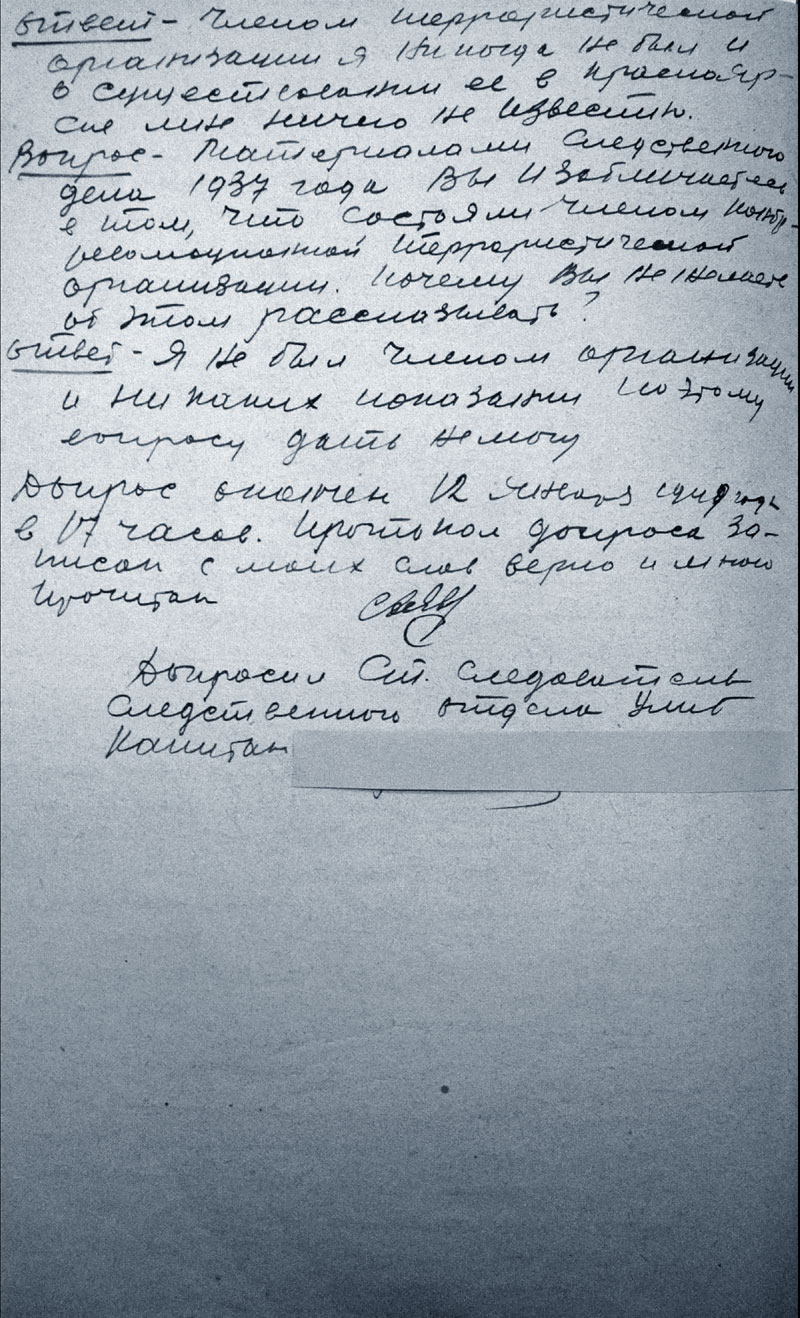 Ответ - Членом террористической
организации я никогда не был и
о существовании ее в Краснояр-
ске мне ничего не известно.
Вопрос - Материалами следственного
дела 1937 года Вы изобличаетесь
в том, что состояли членом контр-
революционной террористической
организации. Почему Вы не желаете
об этом рассказывать?
Ответ - Я не был членом организации
и ни каких показании по этому
вопросу дать не могу
Допрос окончен 12 января 1949 года
в 17 часов. Протокол допроса за-
писан с моих слов верно и мною
прочитан
Допросил Ст. Следователь
Следственного отдела УМГБ
Капитан